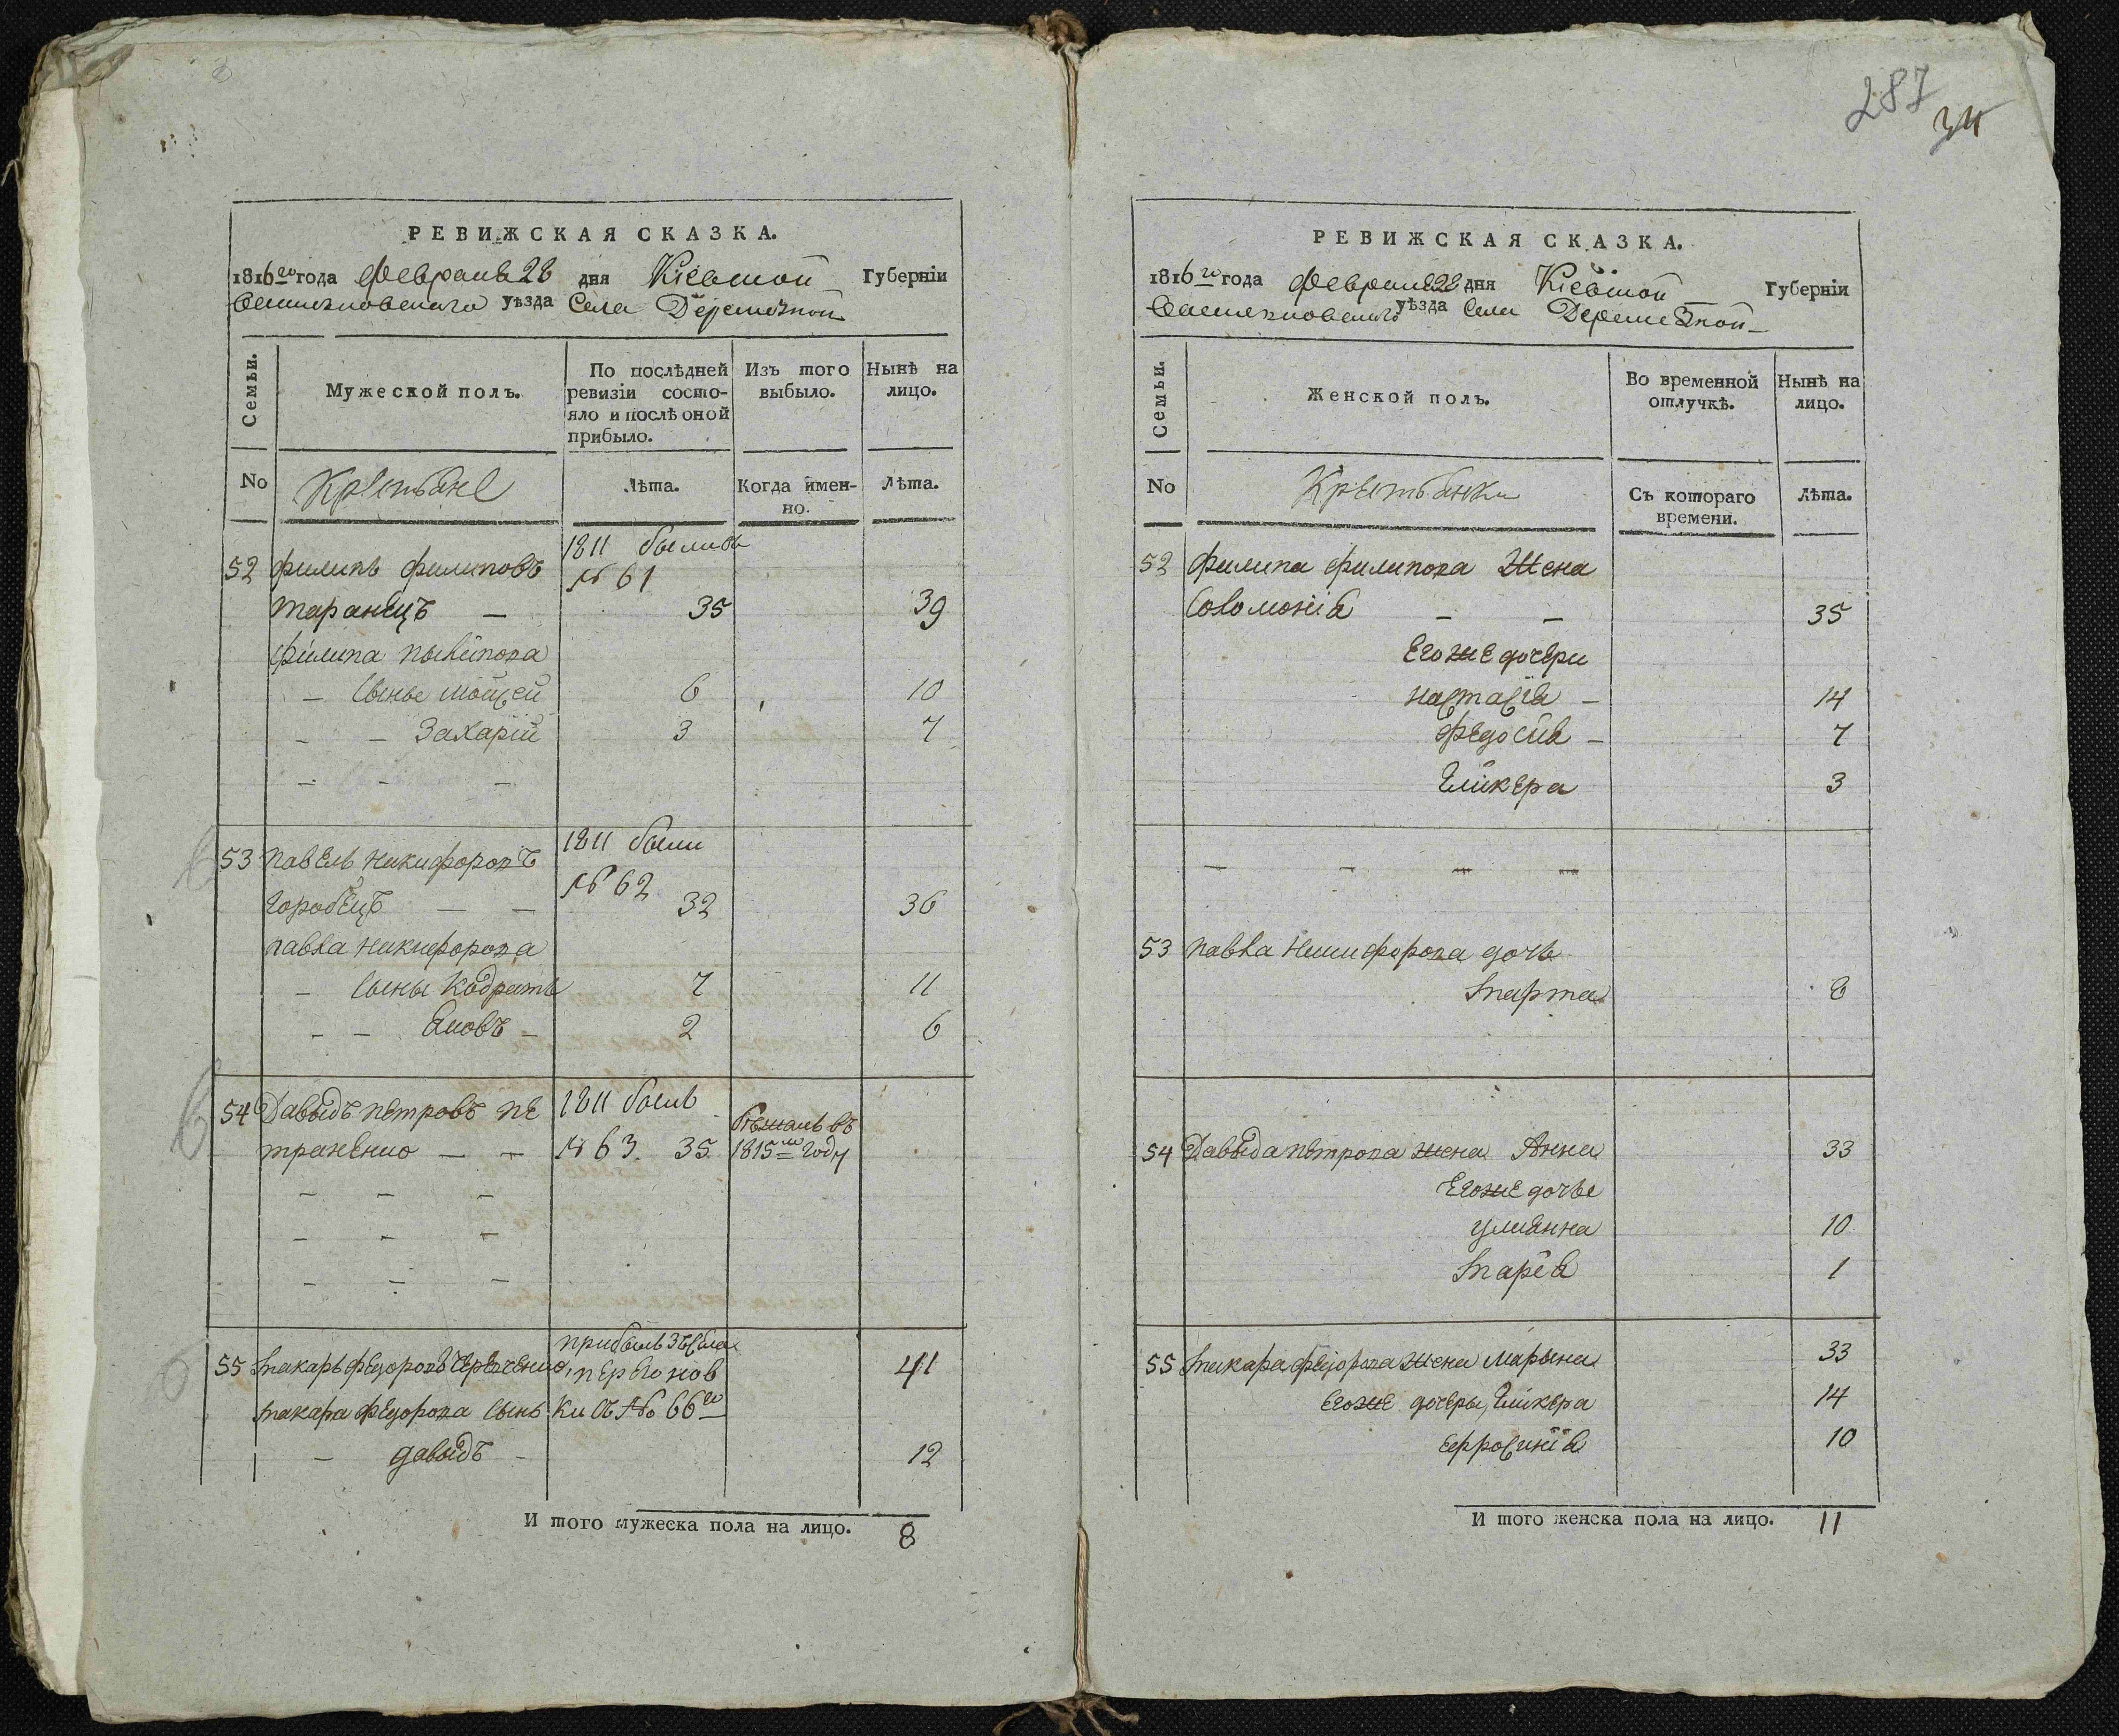 РЕВИЖСКАЯ СКАЗКА.
1816го года февраля 28 дня Кіевской Губерніи
Васильковскаго уѣзда Села Деремезной
Семьи. Мужеской полъ. По послѣдней ревизіи состояло и послѣ оной прибыло. Изъ того выбыло. Нынѣ на лицо.
No Крестьяне Лѣта. Когда именно. Лѣта.
52 филипъ филиповъ 1811 былъ въ № 61
таранецъ — 35 39
филипа
— сыны мойсей 6 10
— — Захарій 3 7
— — —
53 павелъ никифоровъ 1811 были
№ 62
горобецъ — — 32 36
павла никифорова
— сыны кодратъ 7 11
— — Яковъ — 2 6
54 Давыдъ петровъ пе 1811 былъ бежалъ въ
траненко — — № 63. 35 1815м году
— — —
— — —
— — —
прибылъ
55 макаръ федоровъ 41
макара федорова сынъ ки съ № 66го
— давыдъ — 12
И того мужеска пола на лицо. 8
287
34
РЕВИЖСКАЯ СКАЗКА.
1816го года февраля 28 дня Кіевской Губерніи
Васильковскаго уѣзда Села Деремезной
Семьи. Женской полъ. Во временной отлучкѣ. Нынѣ на лицо.
No Крестьянки Съ котораго времени. Лѣта.
52 филипа филипова Жена
соломонія — — 35
Егоже дочери
настасія — 14
федосія — 7
гликера 3
— — — —
53 павла никифорова дочь
марта 8
54 Давыда петрова жена Анна 33
Егоже дочьі
улиянна 10
марія 1
55 макара федорова жена марына 33
егоже дочеры, гликера 14
ефросинія 10
И того женска пола на лицо. 11